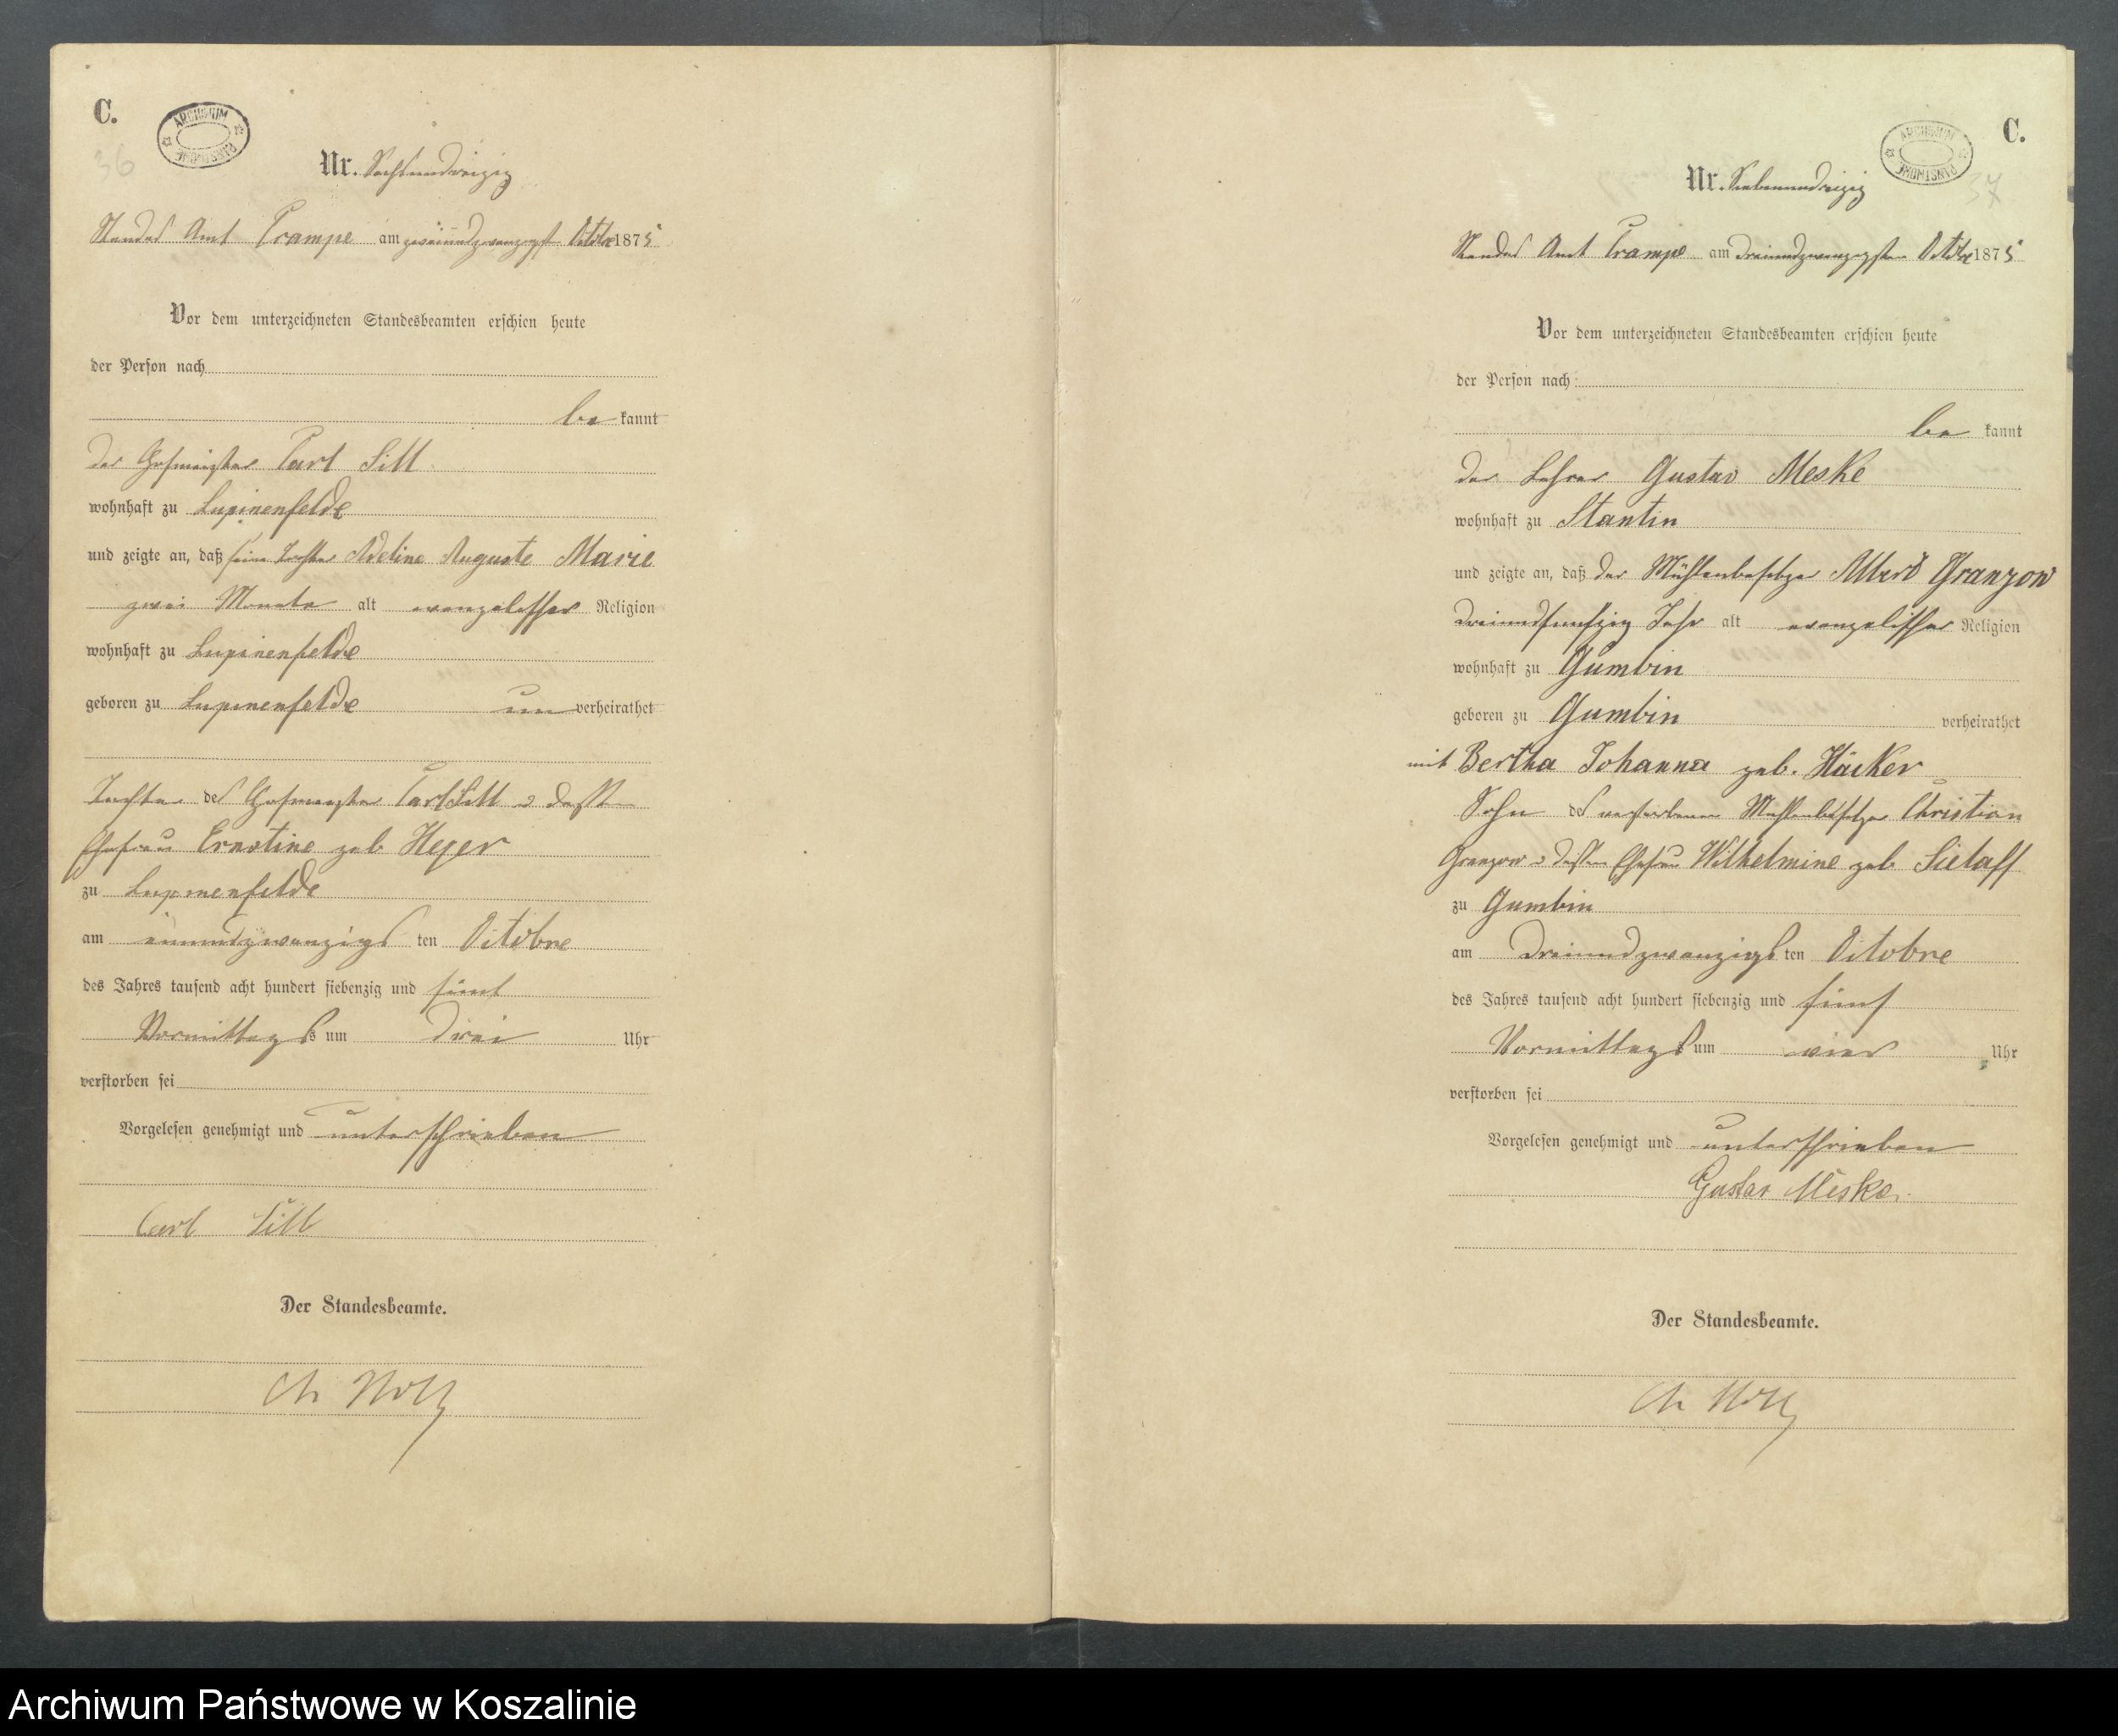 C.
ARCHIWUM PAŃSTWOWE
36
Nr. Sechsunddreizig
Standes Amt Trampe am zweiundzwanzigsten October 1875
Vor dem unterzeichneten Standesbeamten erschien heute
der Person nach
be kannt
der Hofmeister Carl Litt
wohnhaft zu Lupinenfelde
und zeigte an, daß seine Tochter Adeline Auguste Marie
zwei Monate alt evangelischer Religion
wohnhaft zu Lupinenfelde
geboren zu Lupinenfelde un verheirathet
Tochter des Hofmeister Carl Litt u dessen
Ehefrau Ernstine geb Heyer
zu Lupinenfelde
am einundzwanzigs ten Octobre
des Jahres tausend acht hundert siebenzig und fünf
Vormittags um drei Uhr
verstorben sei
Vorgelesen genehmigt und unterschrieben
Carl Litt
Der Standesbeamte.
C.
ARCHIWUM PAŃSTWOWE
37
Nr. Siebenunddreizig
Standes Amt Trampe am dreiundzwanzigsten October 1875
Vor dem unterzeichneten Standesbeamten erschien heute
der Person nach
be kannt
der Lehrer Gustav Meske
wohnhaft zu Stantin
und zeigte an, daß der Mühlenbesitzer Albert Granzow
dreiundfunfzig Jahr alt evangelischer Religion
wohnhaft zu Gumbin
geboren zu Gumbin verheirathet
mit Bertha Johanna geb. Häcker
Sohn des verstorbenen Mühlenbesitzer Christian
Granzow u dessen Ehefrau Wilhelmine geb Sielaff
zu Gumbin
am dreiundzwanzigs ten Octobre
des Jahres tausend acht hundert siebenzig und fünf
Vormittags um vier Uhr
verstorben sei
Vorgelesen genehmigt und unterschrieben
Gustav Meske.
Der Standesbeamte.
Archiwum Państwowe w Koszalinie